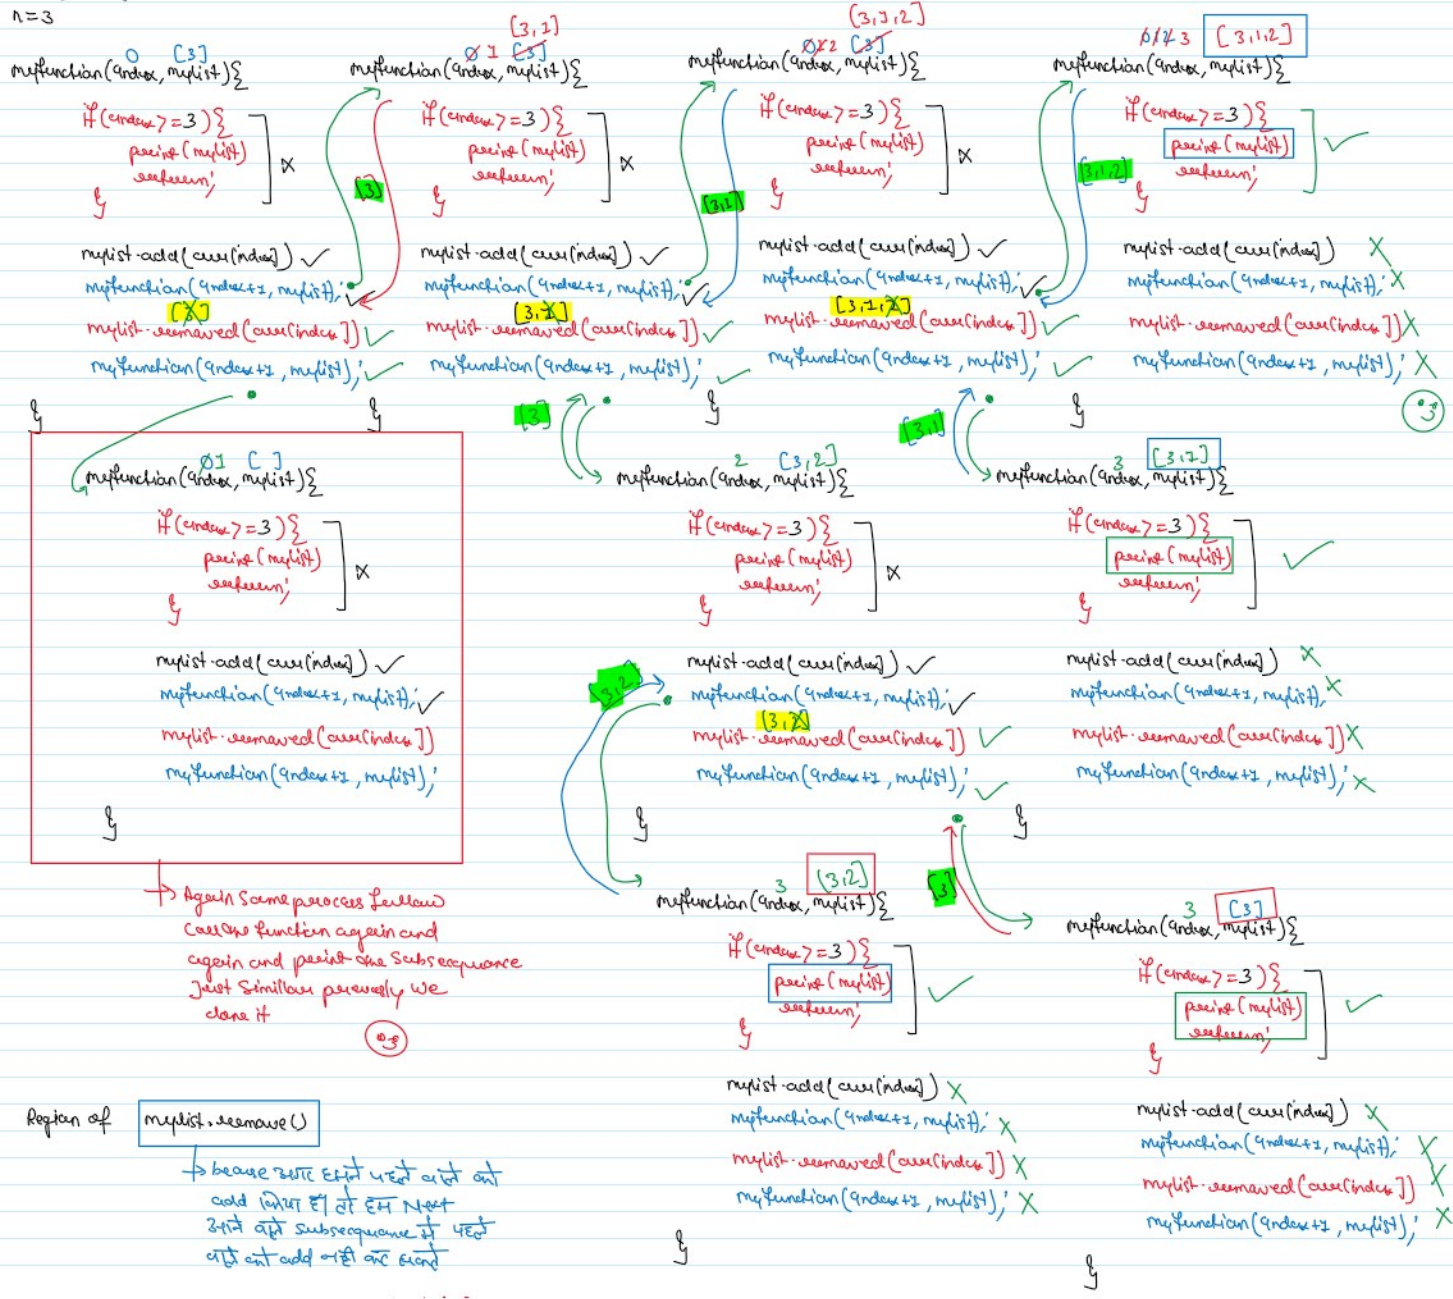 n=3
0 [3]
myfunction(index, mylist){
if(index>=3){
print(mylist)
return;
}
mylist.add(arr[index])
myfunction(index+1, mylist);
[3]
mylist.removed(arr[index])
myfunction(index+1, mylist);
}
[3,1]
0 1 [3]
myfunction(index, mylist){
if(index>=3){
print(mylist)
return;
}
[3]
mylist.add(arr[index])
myfunction(index+1, mylist);
[3,1]
mylist.removed(arr[index])
myfunction(index+1, mylist);
}
[3,1,2]
0 1 2 [3]
myfunction(index, mylist){
if(index>=3){
print(mylist)
return;
}
[3,1]
mylist.add(arr[index])
myfunction(index+1, mylist);
[3,1,2]
mylist.removed(arr[index])
myfunction(index+1, mylist);
}
0 1 2 3 [3,1,2]
myfunction(index, mylist){
if(index>=3){
print(mylist)
return;
}
[3,1,2]
mylist.add(arr[index])
myfunction(index+1, mylist);
mylist.removed(arr[index])
myfunction(index+1, mylist);
}
0 1 [ ]
myfunction(index, mylist){
if(index>=3){
print(mylist)
return;
}
mylist.add(arr[index])
myfunction(index+1, mylist);
mylist.removed(arr[index])
myfunction(index+1, mylist);
}
[3]
2 [3,2]
myfunction(index, mylist){
if(index>=3){
print(mylist)
return;
}
[3,2]
mylist.add(arr[index])
myfunction(index+1, mylist);
[3,2]
mylist.removed(arr[index])
myfunction(index+1, mylist);
}
[3,1]
3 [3,1]
myfunction(index, mylist){
if(index>=3){
print(mylist)
return;
}
mylist.add(arr[index])
myfunction(index+1, mylist);
mylist.removed(arr[index])
myfunction(index+1, mylist);
}
Again Same process follow
Call the function again and
again and print the Subsecquance
Just Similar prevosly we
done it
3 [3,2]
myfunction(index, mylist){
if(index>=3){
print(mylist)
return;
}
mylist.add(arr[index])
myfunction(index+1, mylist);
mylist.removed(arr[index])
myfunction(index+1, mylist);
}
[3]
3 [3]
myfunction(index, mylist){
if(index>=3){
print(mylist)
return;
}
mylist.add(arr[index])
myfunction(index+1, mylist);
mylist.removed(arr[index])
myfunction(index+1, mylist);
}
Region of mylist.remove()
becuse अगर हमने पहले वाले को
add किया है तो हम Next
आने वाले subsecquance में पहले
वाले को add नहीं कर सकते